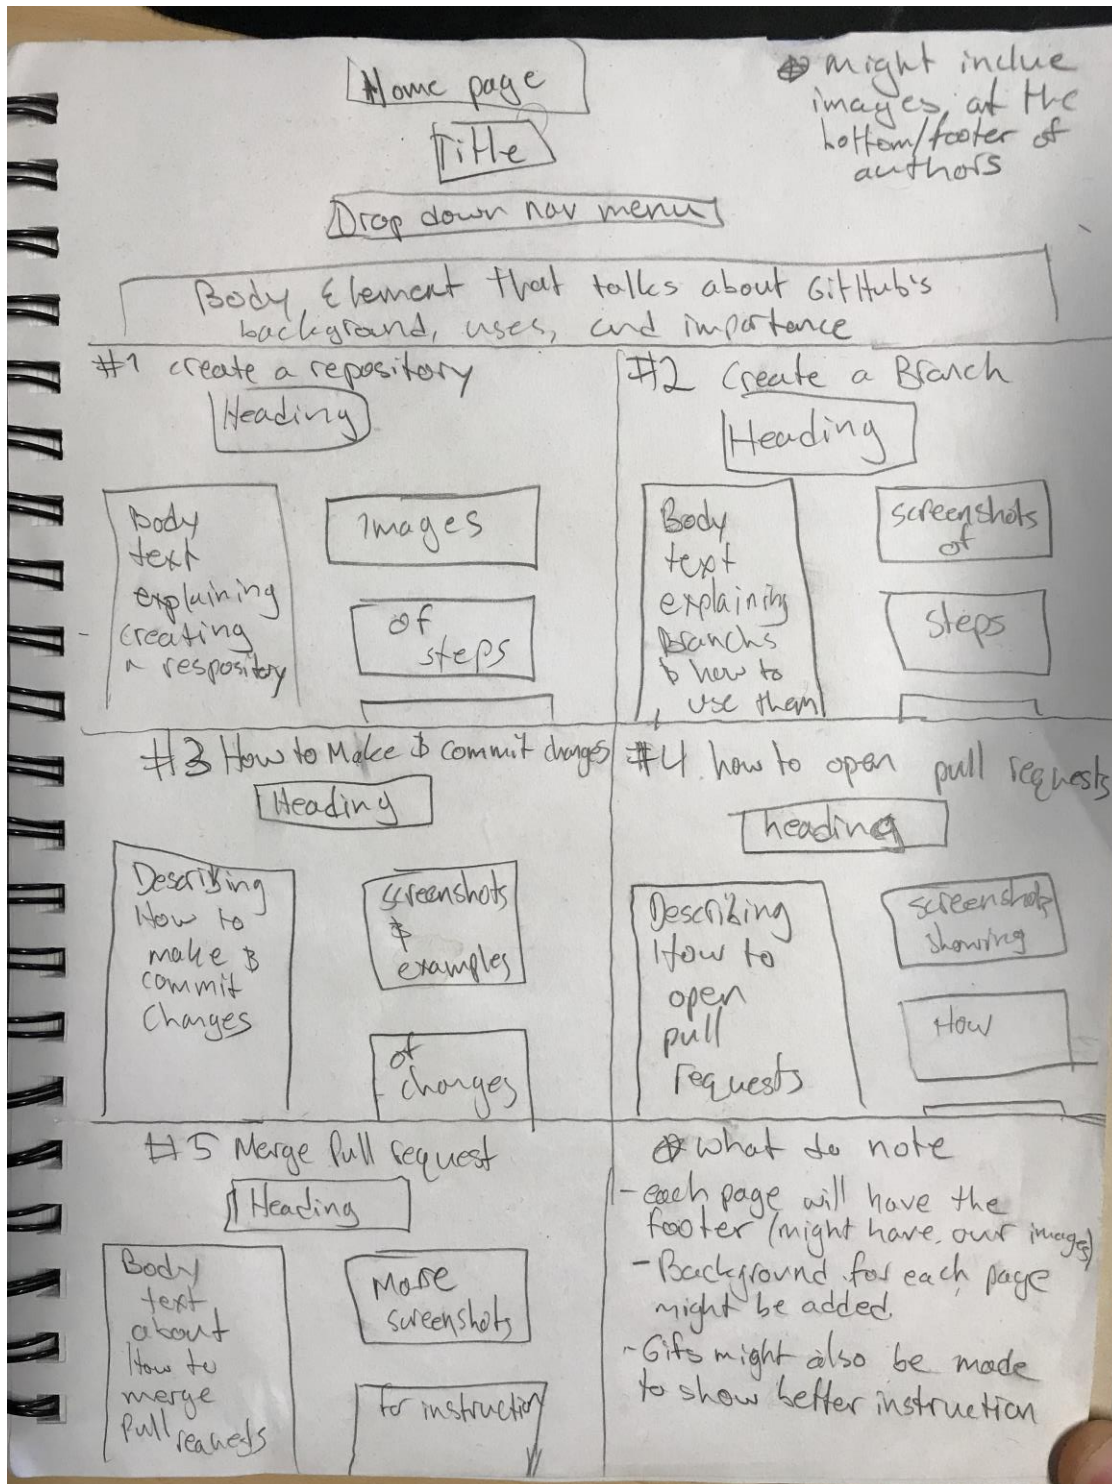 Home page
Title
Drop down nav menu
might inclue
images, at the
bottom/footer of
authors
Body Element that talks about GitHub's
background, uses, and importance
#1 create a repository
Heading
Body
text
explaining
creating
a respository
Images
of
steps
#2 Create a Branch
Heading
Body
text
explaining
Branchs
& how to
use them
screenshots
of
steps
#3 How to Make & commit changes
Heading
Describing
How to
make &
commit
Changes
screenshots
&
examples
of
changes
#4. how to open pull requests
heading
Describing
How to
open
pull
requests
screenshots
showing
How
#5 Merge Pull request
Heading
Body
text
about
How to
merge
Pull requests
More
screenshots
for instruction
what to note
- each page will have the
footer (might have our images)
- Background for each page
might be added.
- Gifs might also be made
to show better instruction